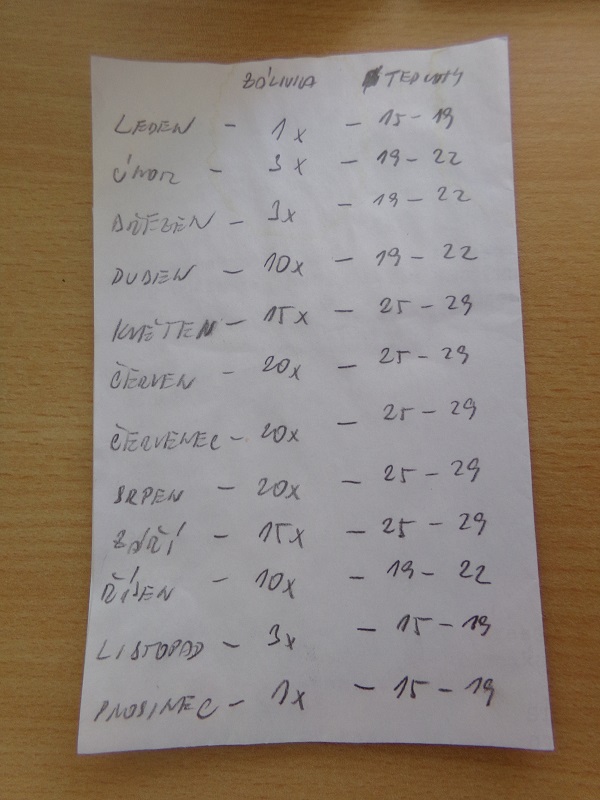 ZÁLIVKA TEPLOTY
LEDEN - 1x - 15 - 19
ÚNOR - 3x - 19 - 22
BŘEZEN - 3x - 19 - 22
DUBEN - 10x - 19 - 22
KVĚTEN - 15x - 25 - 29
ČERVEN - 20x - 25 - 29
ČERVENEC - 20x - 25 - 29
SRPEN - 20x - 25 - 29
ZÁŘÍ - 15x - 25 - 29
ŘÍJEN - 10x - 19 - 22
LISTOPAD - 3x - 15 - 19
PROSINEC - 1x - 15 - 19